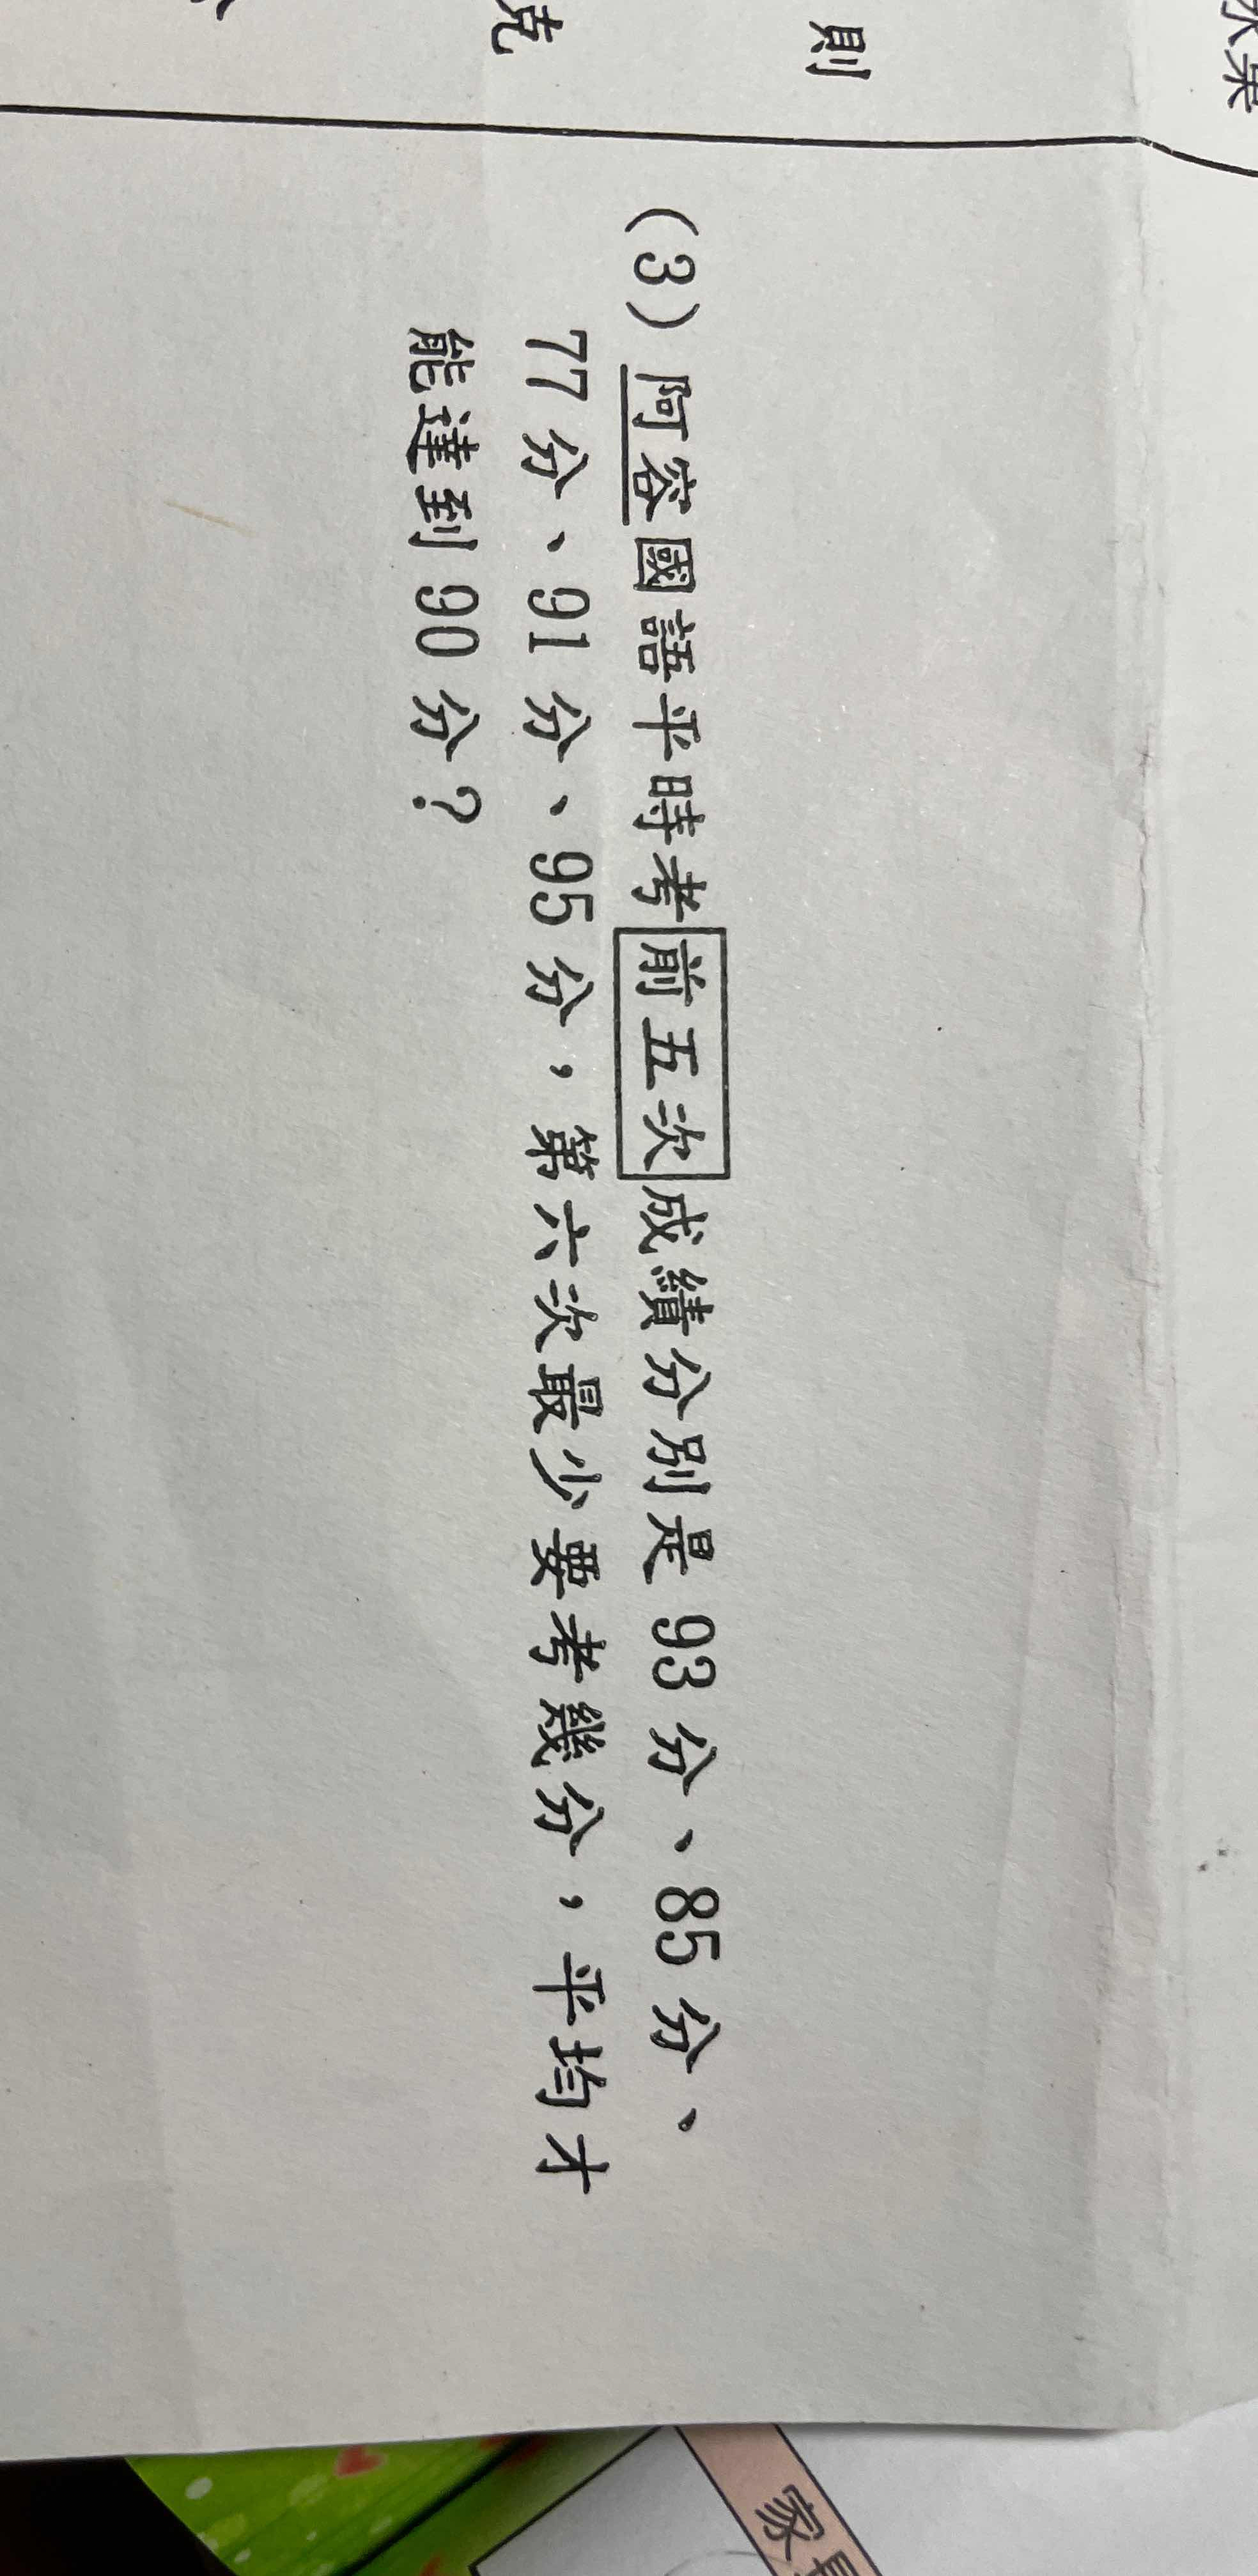 水果
則
克
(3)阿容國語平時考前五次成績分別是93分、85分、
77分、91分、95分，第六次最少要考幾分，平均才
能達到90分？
家